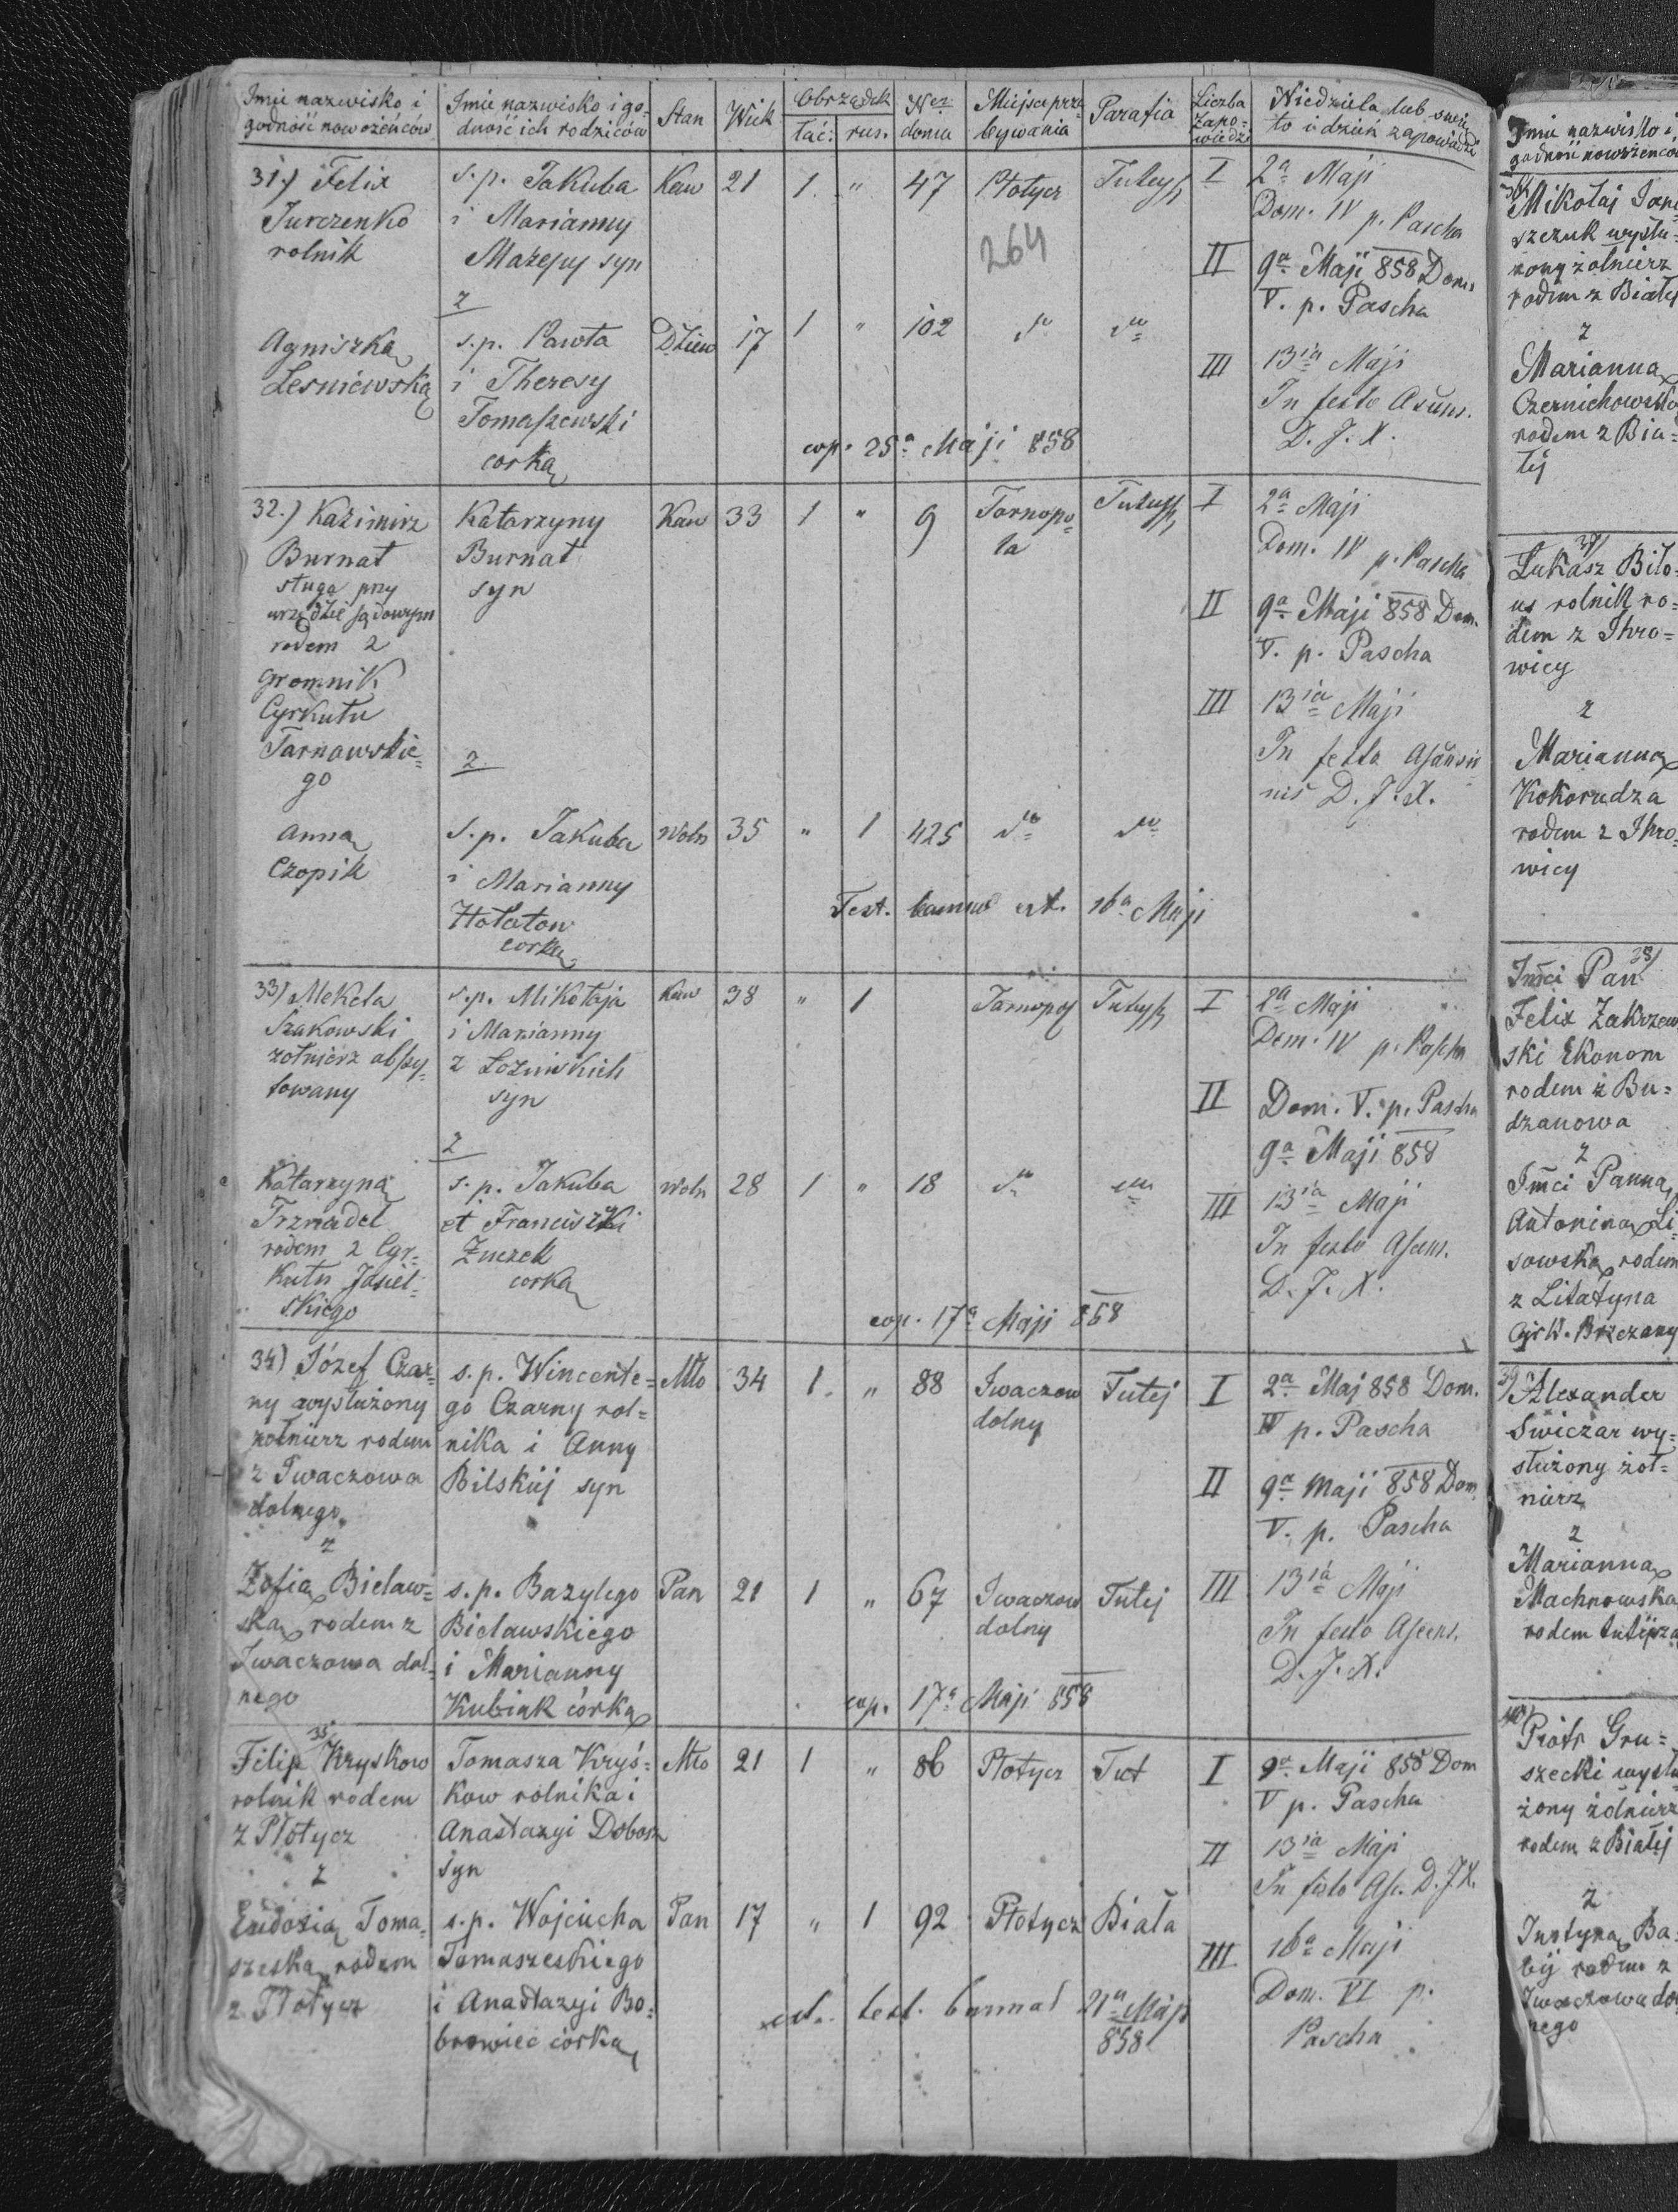 Imie nazwisko i godność nowożeńców
Imie nazwisko i go-
dność ich rodziców
Stan
Wiek
Obrządek
łać: rus.
Ner domu
Miejsce prze
bywania
Parafia
Liczba
Zapo-
wiedzi
Niedziela lub swię
to i dzień zapowiedzi
31.) Felix
Jurczenko
rolnik
s.p. Jakuba
i Marianny
Mazepy syn
Kaw 21 1. " 47 Płotycz Tutejsz
264
I 2a Maji
Dom. IV p. Pascha
II 9a Maji 858 Dom.
V. p. Pascha
z
Agniszka
Lesniewska
s.p. Pawła
i Theresy
Tomaszewski
corka
Dziew 17 1 " 102 dto dto
III 13ia Maji
In festo Ascens.
D. J. X.
cop. 25a Maji 858
32.) Kazimirz
Burnat
sługa przy
urzędzie sądowym
rodem z
Gromnik
Cyrkułu
Tarnowskie-
go
Katarzyny
Burnat
syn
Kaw 33 1 " 9 Tarnopo-
la
Tutejsz
I 2a Maji
Dom. IV p. Pascha
II 9a Maji 858 Dom.
V. p. Pascha
III 13ia Maji
In festo
nis D. J. X.
z
Anna
Czopik
s.p. Jakuba
i Marianny
Hołaton
corka
Woln 35 " 1 425 dto dto
Test. bannor ext. 16a Maji
33) Mekela
Szakowski
żołnierz abszy-
towany
s.p. Mikołaja
i Marianny
z Łozinskich
syn
Kaw 38 " 1 Tarnopol Tutejsz
I 2a Maji
Dom. IV p. Pascha
II Dom. V. p. Pascha
9a Maji 858
z
Katarzyna
Trznadel
rodem z Cyr-
kułu Jasiel-
skiego
s.p. Jakuba
et Franciszki
Zuczek
corka
Woln 28 1 " 18 dto dto
III 13ia Maji
In festo Ascens.
D. J. X.
cop. 17a Maji 858
34) Józef Czar-
ny wysłużony
żołnierz rodem
z Iwaczowa
dolnego
s.p. Wincente-
go Czarny rol-
nika i Anny
Bilskiej syn
Mło 34 1. " 88 Iwaczow
dolny
Tutej
I 2a Maj 858 Dom.
IV p. Pascha
II 9a Maji 858 Dom
V. p. Pascha
z
Zofia Bielaw-
ska rodem z
Iwaczowa dol-
nego
s.p. Bazylego
Bielawskiego
i Marianny
Kubiak córka
Pan 21 1 " 67 Iwaczow
dolny
Tutej
III 13ia Maji
In festo Ascens.
D. J. X.
cop. 17a Maji 858
35.
Filip Kryskow
rolnik rodem
z Płotycz
Tomasza Kryś-
kow rolnika i
Anastazyi Dobosz
syn
Mło 21 1 " 86 Płotycz Tut
I 9a Maji 858 Dom
V p. Pascha
II 13ia Maji
In festo Asc. D. J. X.
z
Eudoxia Toma-
szeska rodem
z Płotycz
s.p. Wojciecha
Tomaszeskiego
i Anastazyi Bo-
browiec córka
Pan 17 " 1 92 Płotycz Biała
III 16a Maji
Dom. VI p.
Pascha
ext. test. bannal 21a Maji
858
Imie nazwisko i
godność nowożeńców
Mikołaj Jani
szczuk wysłu-
żony żołnierz
rodem z Białej
z
Marianna
Czernichowska
rodem z Bia-
łej
37
Łukasz Biło-
us rolnik ro-
dem z Ihro-
wicy
z
Marianna
Kokorudza
rodem z Ihro-
wicy
38
Imci Pan
Felix Zakrzew
ski Ekonom
rodem z Bu-
dzanowa
z
Imci Panna
Antonina Li-
sowska rodem
z Litatyna
Cyrk. Brzezany
39
Alexander
Swiczar wy-
służony żoł-
nierz
z
Marianna
Machnowska
rodem tutejsza
40
Piotr Gru-
szecki wysłu
żony żołnierz
rodem z Białej
z
Justyna Ba-
bij rodem z
Iwaczowa dol
nego